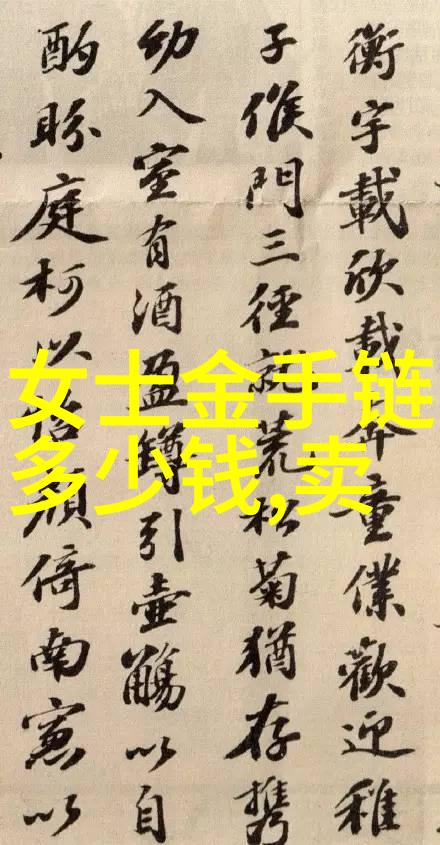 衡宇載欣載奔童僕歡迎稚
子候門三徑就荒松菊猶存携
幼入室有酒盈罇引壺觴以自
酌眄庭柯以怡顏倚南窓以
女士金手链
多少钱,卖